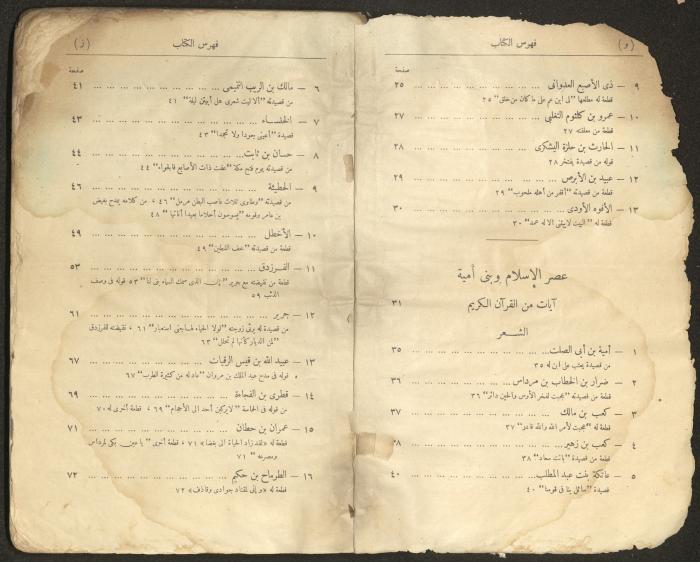 (و)
فهرس الكتاب
صفحة
٩ — ذى الأصبع العدوانى ... ... ... ٢٥
قطعة له مطلعها "لى ابن عم على ما كان من خلق" ٢٥
١٠ — عمرو بن كلثوم التغلبى ... ... ... ٢٧
قطعة من معلقته ٢٧
١١ — الحارث بن حلزة اليشكرى ... ... ... ٢٨
قوله من قصيدة يفتخر ٢٨
١٢ — عبيد بن الأبرص ... ... ... ٢٩
قطعة من قصيدته "أقفر من أهله ملحوب" ٢٩
١٣ — الأفوه الأودى ... ... ... ٣٠
قطعة له "البيت لايبتنى الا له عمد" ٣٠
عصر الإسلام وبنى أمية
آيات من القرآن الكريم ٣١
الشعر
١ — أمية بن أبى الصلت ... ... ... ٣٥
من قصيدة يعتب على ابن له ٣٥
٢ — ضرار بن الخطاب بن مرداس ... ... ... ٣٦
قطعة من قصيدته "عجبت لفخر الأوس والحين دائر" ٣٦
٣ — كعب بن مالك ... ... ... ٣٧
قطعة له "عجبت لأمر الله والله قادر" ٣٧
٤ — كعب بن زهير ... ... ... ٣٨
قطعة من قصيدة "بانت سعاد" ٣٨
٥ — عاتكة بنت عبد المطلب ... ... ... ٤٠
قصيدة "سائل بنا فى قومنا" ٤٠
فهرس الكتاب
(ز)
صفحة
٦ — مالك بن الريب التميمى ... ... ... ٤١
من قصيدته "ألا ليت شعرى هل أبيتن ليلة" ٤١
٧ — الخنساء ... ... ... ٤٣
قصيدة "أعينى جودا ولا تجمدا" ٤٣
٨ — حسان بن ثابت ... ... ... ٤٤
من قصيدته يوم فتح مكة "عفت ذات الأصابع فالجواء" ٤٤
٩ — الحطيئة ... ... ... ٤٦
من قصيدته "وطاوى ثلاث عاصب البطن مرمل" ٤٦ ، من كلامه يمدح بغيض
بن عامر وقومه "يسوسون أحلاما بعيدا أناتها" ٤٨
١٠ — الأخطل ... ... ... ٤٩
قطعة من قصيدته "خف القطين" ٤٩
١١ — الفرزدق ... ... ... ٥٣
قطعة من نقيضته مع جرير "إن الذى سمك السماء بنى لنا" ٥٣ قوله فى وصف
الذئب ٥٩
١٢ — جرير ... ... ... ٦١
من قصيدة له يرثى زوجته "لولا الحياء لهاجنى استعبار" ٦١ ، نقيضته للفرزدق
"لمن الديار كأنها لم تحلل" ٦٣
١٣ — عبيد الله بن قيس الرقيات ... ... ... ٦٧
قوله فى مدح عبد الملك بن مروان "عاد له من كثيرة الطرب" ٦٧
١٤ — قطرى بن الفجاءة ... ... ... ٦٩
من قوله فى الحماسة "لايركنن أحد الى الأحجام" ٦٩ ، قطعة أخرى له ٧٠
١٥ — عمران بن حطان ... ... ... ٧١
قطعة له «لقد زاد الحياة الى بغضا» ٧١ ، قطعة أخرى "يا عين بكى لمرداس
ومصرعه" ٧١
١٦ — الطرماح بن حكيم ... ... ... ٧٢
قطعة له «وإنى لمقتاد جوادى وقاذف» ٧٢